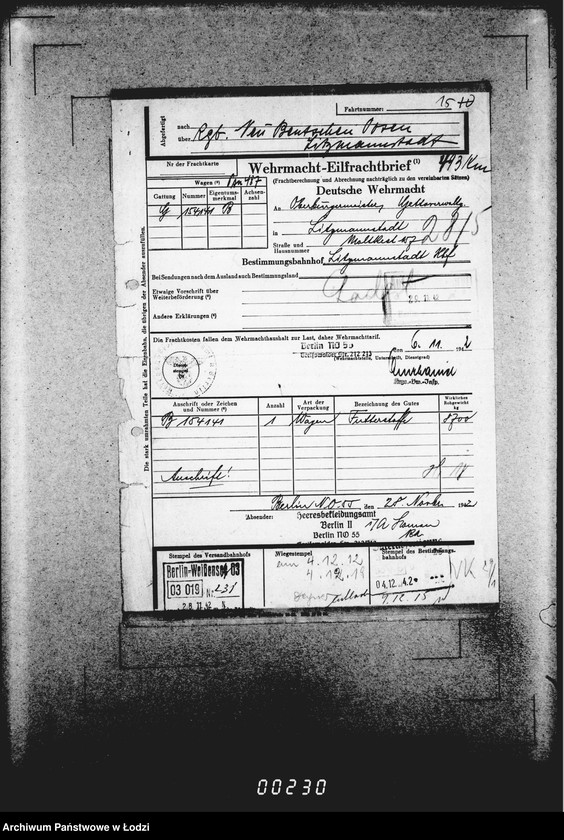 Fahrtnummer: 15
Abgefertigt
nach Rgb. Neu Bentschen Posen
über Litzmannstadt
Nr der Frachtkarte
Wehrmacht-Eilfrachtbrief (1)
443 Km
Wagen (2)
(Frachtberechnung und Abrechnung nachträglich zu den vereinbarten Sätzen)
Gattung Nummer Eigentums-merkmal Achsen-zahl
G 154141 B
Deutsche Wehrmacht
An Oberbürgermeister, Gettoverwaltg.
in Litzmannstadt
Straße und Hausnummer
2815
Bestimmungsbahnhof Litzmannstadt Hbf
Bei Sendungen nach dem Ausland auch Bestimmungsland
Etwaige Vorschrift über Weiterbeförderung (3)
Andere Erklärungen (4)
Die stark umrahmten Teile hat die Eisenbahn, die übrigen der Absender auszufüllen.
Die Frachtkosten fallen dem Wehrmachthaushalt zur Last, daher Wehrmachttarif.
Berlin NO 55
den 6. 11. 1942
(Wehrmachtstelle, Unterschrift, Dienstgrad)
Dienst-stempel
Anschrift oder Zeichen und Nummer (4)
Anzahl
Art der Verpackung
Bezeichnung des Gutes
Wirkliches Rohgewicht kg
B 154141 1 Wagen Futterstoffe 8700
Anschrift!
Berlin N.O.55 den 28. Novbr 1942
Absender:
Heeresbekleidungsamt
Berlin II
Berlin NO 55
Stempel des Versandbahnhofs
Wiegestempel
Stempel des Bestimmungs-bahnhofs
Berlin-Weißensee 03
03 019 Nr. 231
28 11 42
am 4.12.12
4.12.19
04.12.42
9.12.15
00230
Archiwum Państwowe w Łodzi